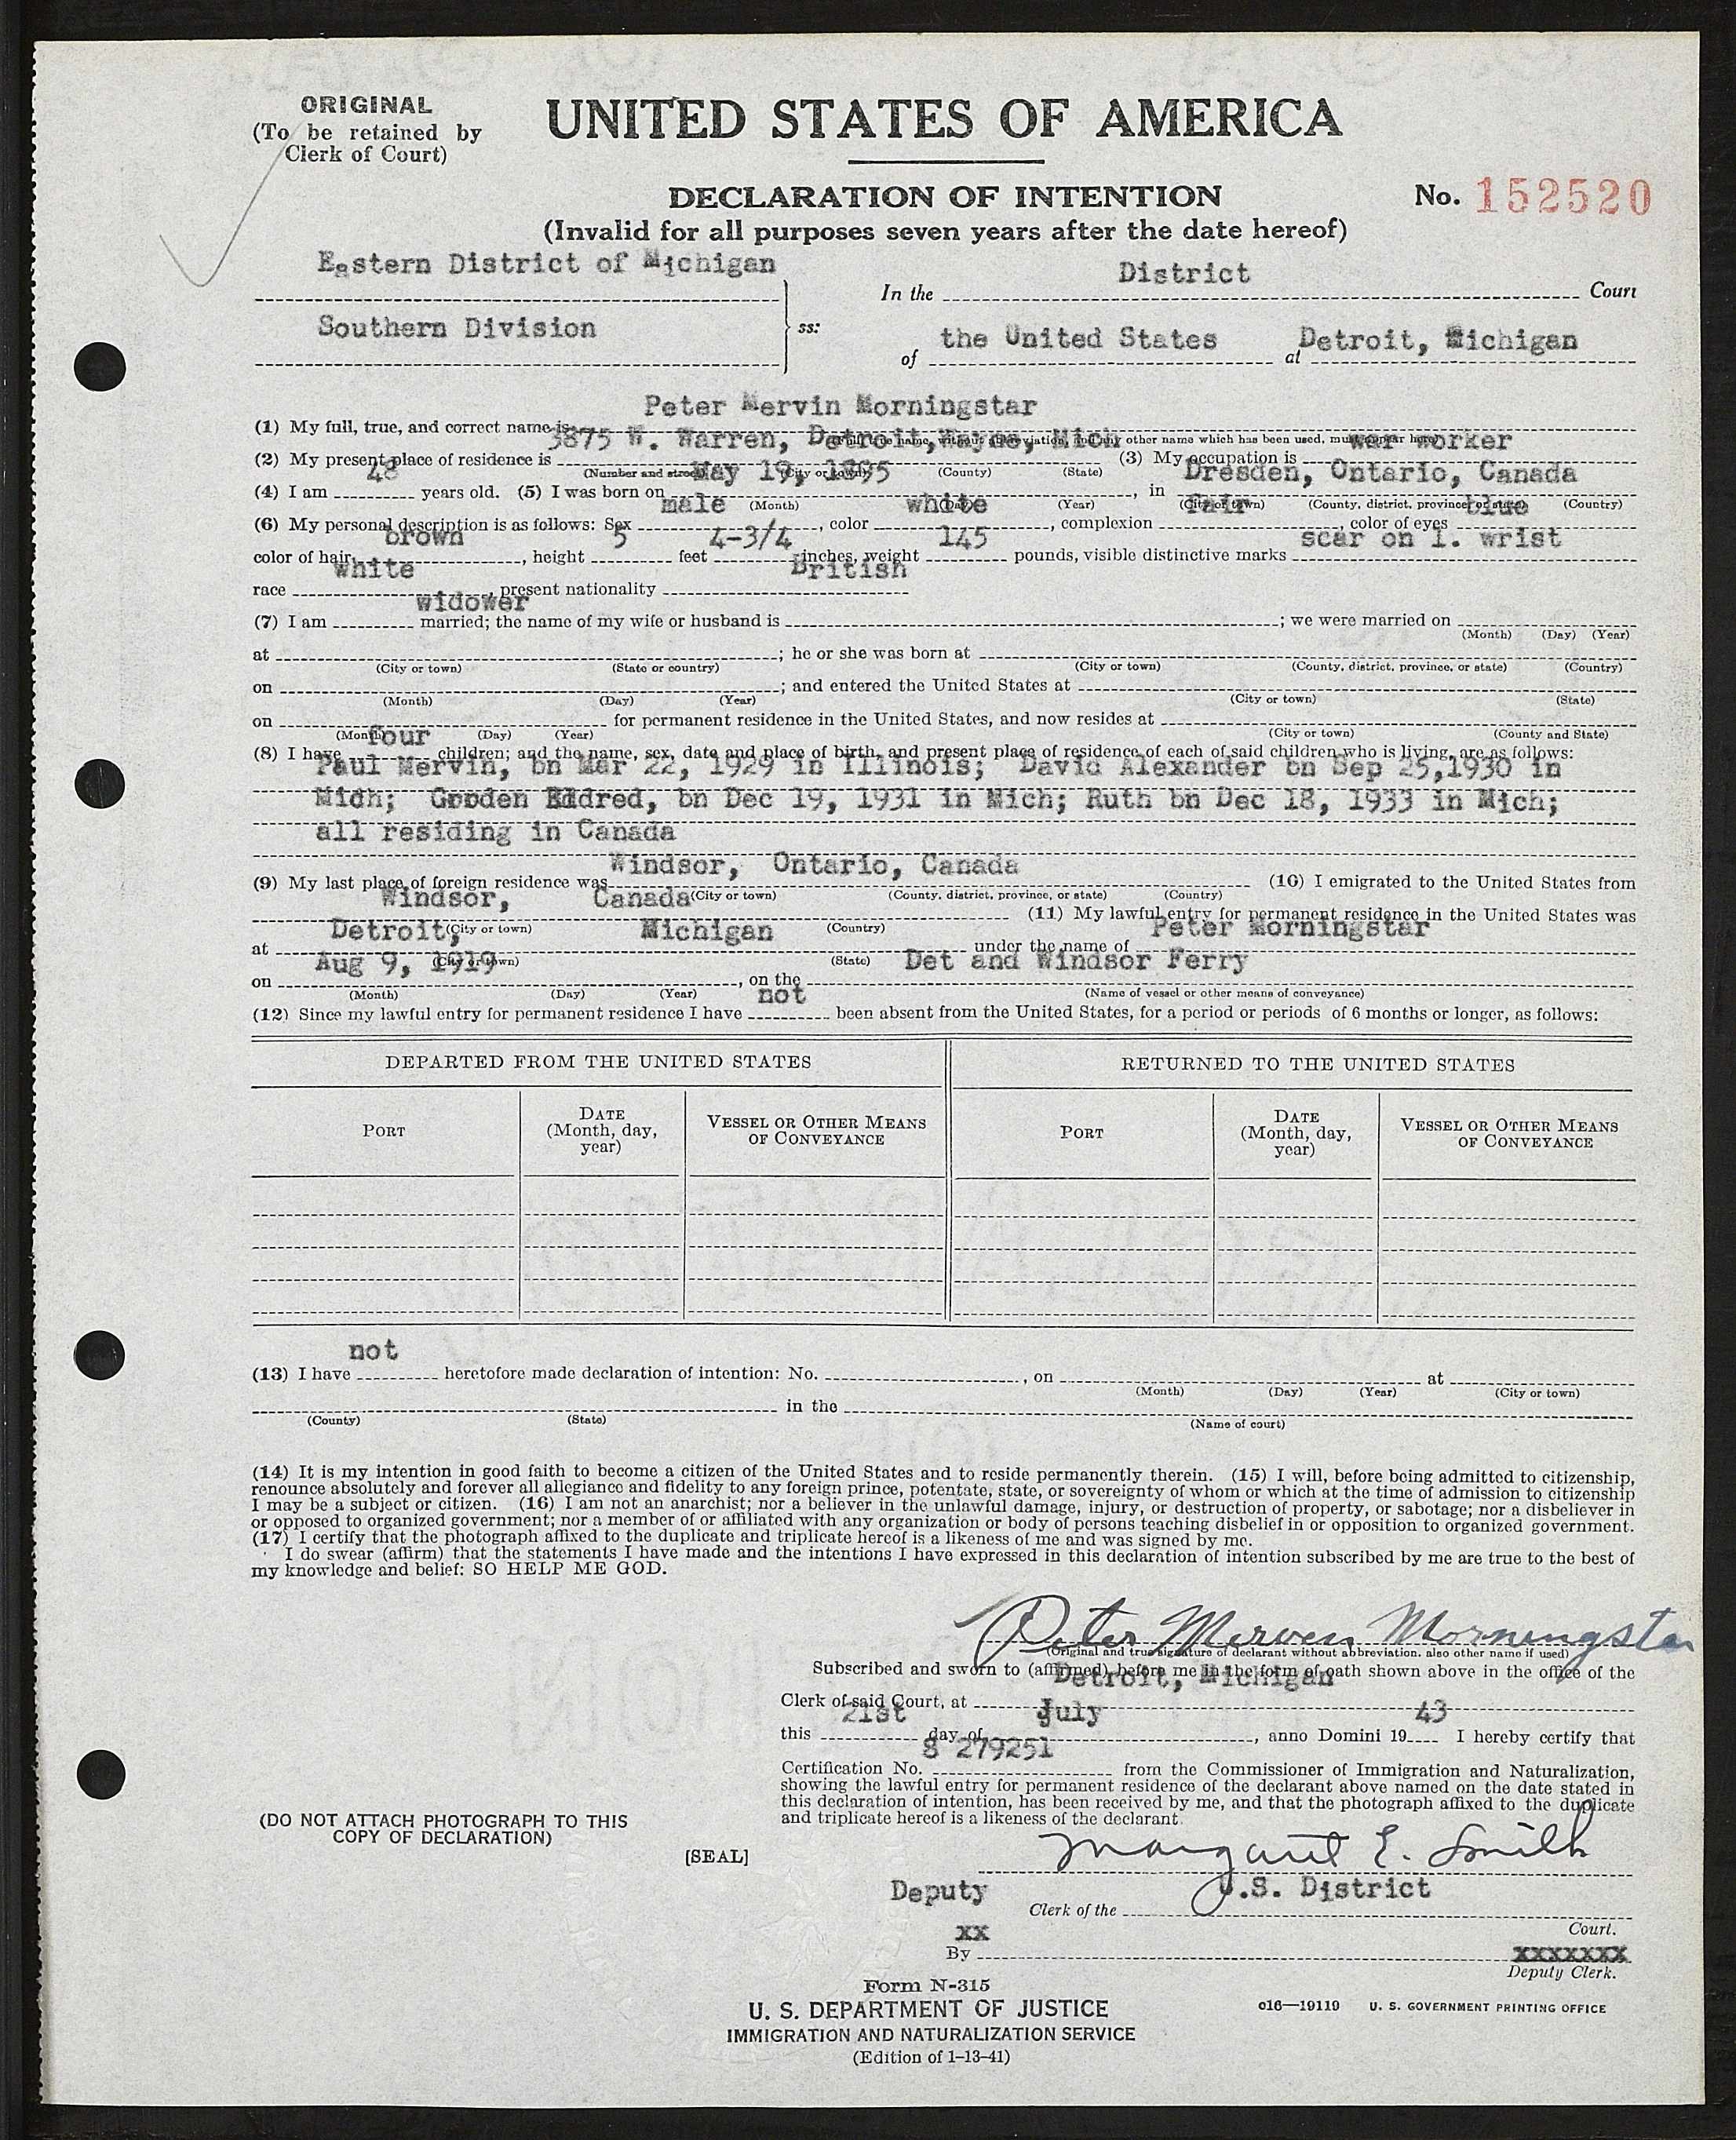 ORIGINAL
(To be retained by
Clerk of Court)
UNITED STATES OF AMERICA
DECLARATION OF INTENTION
No. 152520
(Invalid for all purposes seven years after the date hereof)
Eastern District of Michigan
Southern Division
ss:
In the District Court
of the United States at Detroit, Michigan
(1) My full, true, and correct name is Peter Mervin Morningstar
(Full, true name, without abbreviation, and any other name which has been used, must appear here)
(2) My present place of residence is 3875 W. Warren, Detroit, Wayne, Mich (3) My occupation is war worker
(Number and street) (City or town) (County) (State)
(4) I am 48 years old. (5) I was born on May 19, 1895, in Dresden, Ontario, Canada
(Month) (Day) (Year) (City or town) (County, district, province, or state) (Country)
(6) My personal description is as follows: Sex male, color white, complexion fair, color of eyes blue
color of hair brown, height 5 feet 4-3/4 inches, weight 145 pounds, visible distinctive marks scar on l. wrist
race white, present nationality British
(7) I am widower married; the name of my wife or husband is ; we were married on
(Month) (Day) (Year)
at ; he or she was born at
(City or town) (State or country) (City or town) (County, district, province, or state) (Country)
on ; and entered the United States at
(Month) (Day) (Year) (City or town) (State)
on for permanent residence in the United States, and now resides at
(Month) (Day) (Year) (City or town) (County and State)
(8) I have four children; and the name, sex, date and place of birth, and present place of residence of each of said children who is living, are as follows:
Paul Mervin, bn Mar 22, 1929 in Illinois; David Alexander bn Sep 25,1930 in
Mich; Gooden Eldred, bn Dec 19, 1931 in Mich; Ruth bn Dec 18, 1933 in Mich;
all residing in Canada
(9) My last place of foreign residence was Windsor, Ontario, Canada (10) I emigrated to the United States from
(City or town) (County, district, province, or state) (Country)
Windsor, Canada (11) My lawful entry for permanent residence in the United States was
(City or town) (Country)
at Detroit, Michigan under the name of Peter Morningstar
(City or town) (State)
on Aug 9, 1919, on the Det and Windsor Ferry
(Month) (Day) (Year) (Name of vessel or other means of conveyance)
(12) Since my lawful entry for permanent residence I have not been absent from the United States, for a period or periods of 6 months or longer, as follows:
DEPARTED FROM THE UNITED STATES RETURNED TO THE UNITED STATES
PORT DATE (Month, day, year) VESSEL OR OTHER MEANS OF CONVEYANCE PORT DATE (Month, day, year) VESSEL OR OTHER MEANS OF CONVEYANCE
(13) I have not heretofore made declaration of intention: No. , on at
(Month) (Day) (Year) (City or town)
in the
(County) (State) (Name of court)
(14) It is my intention in good faith to become a citizen of the United States and to reside permanently therein. (15) I will, before being admitted to citizenship,
renounce absolutely and forever all allegiance and fidelity to any foreign prince, potentate, state, or sovereignty of whom or which at the time of admission to citizenship
I may be a subject or citizen. (16) I am not an anarchist; nor a believer in the unlawful damage, injury, or destruction of property, or sabotage; nor a disbeliever in
or opposed to organized government; nor a member of or affiliated with any organization or body of persons teaching disbelief in or opposition to organized government.
(17) I certify that the photograph affixed to the duplicate and triplicate hereof is a likeness of me and was signed by me.
I do swear (affirm) that the statements I have made and the intentions I have expressed in this declaration of intention subscribed by me are true to the best of
my knowledge and belief: SO HELP ME GOD.
Peter Merven Morningstar
(Original and true signature of declarant without abbreviation, also other name if used)
Subscribed and sworn to (affirmed) before me in the form of oath shown above in the office of the
Clerk of said Court, at Detroit, Michigan
this 21st day of July, anno Domini 1943 I hereby certify that
Certification No. 8 279251 from the Commissioner of Immigration and Naturalization,
showing the lawful entry for permanent residence of the declarant above named on the date stated in
this declaration of intention, has been received by me, and that the photograph affixed to the duplicate
and triplicate hereof is a likeness of the declarant.
(DO NOT ATTACH PHOTOGRAPH TO THIS
COPY OF DECLARATION)
[SEAL]
Margaret E. Smith
Deputy Clerk of the U.S. District Court.
xx
By xxxxxxx
Deputy Clerk.
Form N-315
U. S. DEPARTMENT OF JUSTICE
IMMIGRATION AND NATURALIZATION SERVICE
(Edition of 1-13-41)
o16—19119 U. S. GOVERNMENT PRINTING OFFICE